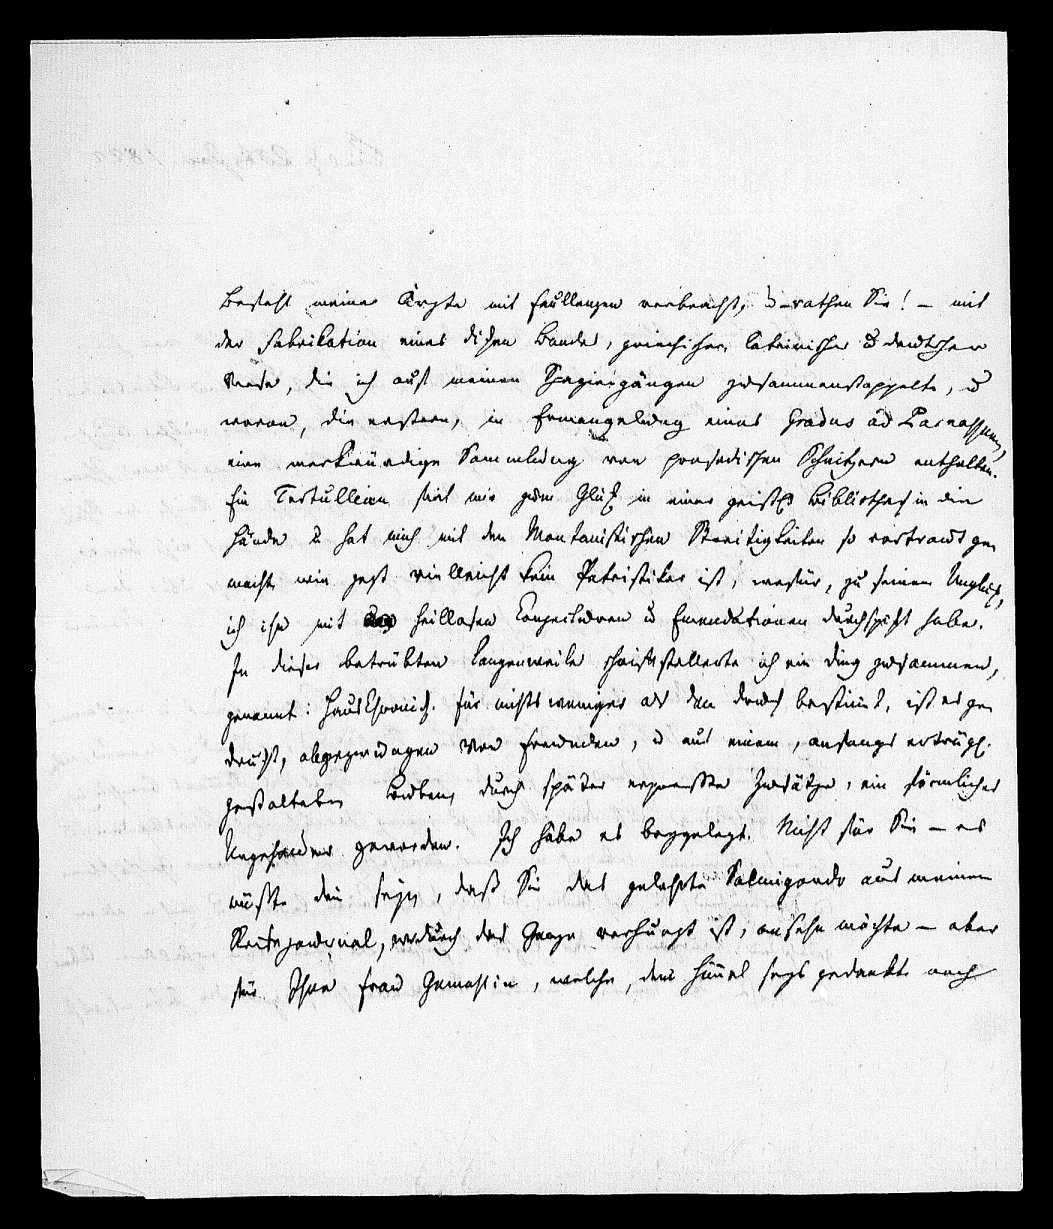 Befehl meiner Ärzte mit faullenzen verbracht, errathen Sie! – mit
der Fabrikation eines dicken Bandes, griechischer, lateinischer u deutscher
Verse, die ich auf meinen Spaziergängen zusammenstoppelte, u
wovon, die erstern, in Ermangelung eines Gradus ad Parnassum,
eine merkwürdige Sammlung von prosodischen Schnitzern enthalten.
Ein Tertullian fiel mir zum Glück in einer Bibliothek in die
Hände u hat mich mit den Montanistischen Streitigkeiten so vertraut ge
macht, wie jezt vielleicht kein Patristiker ist, wofür, zu seinem Unglück,
ich ihn mit heillosen Conjecturen u Emendationen durchspickt habe.
In dieser betrübten Langenweile schriftstellerte ich ein Ding zusammen,
genannt: Hauschronick. Für nichts weniger als den Druck bestimt, ist es ge
druckt, abgezwungen von Freunden, u aus einem, anfangs erträgl.
gestalteten Buben, durch später erpresste Zusätze, ein förmliches
Ungeheuer geworden. Ich habe es beygelegt. Nicht für Sie – es
müßte den seyn, daß Sie das gelehrte Salmigondo aus meinem
Reisejournal, wodurch das Ganze verhunzt ist, ansehn möchte – aber
für Ihre Frau Gemahlin, welche, dem Himel seys gedankt noch